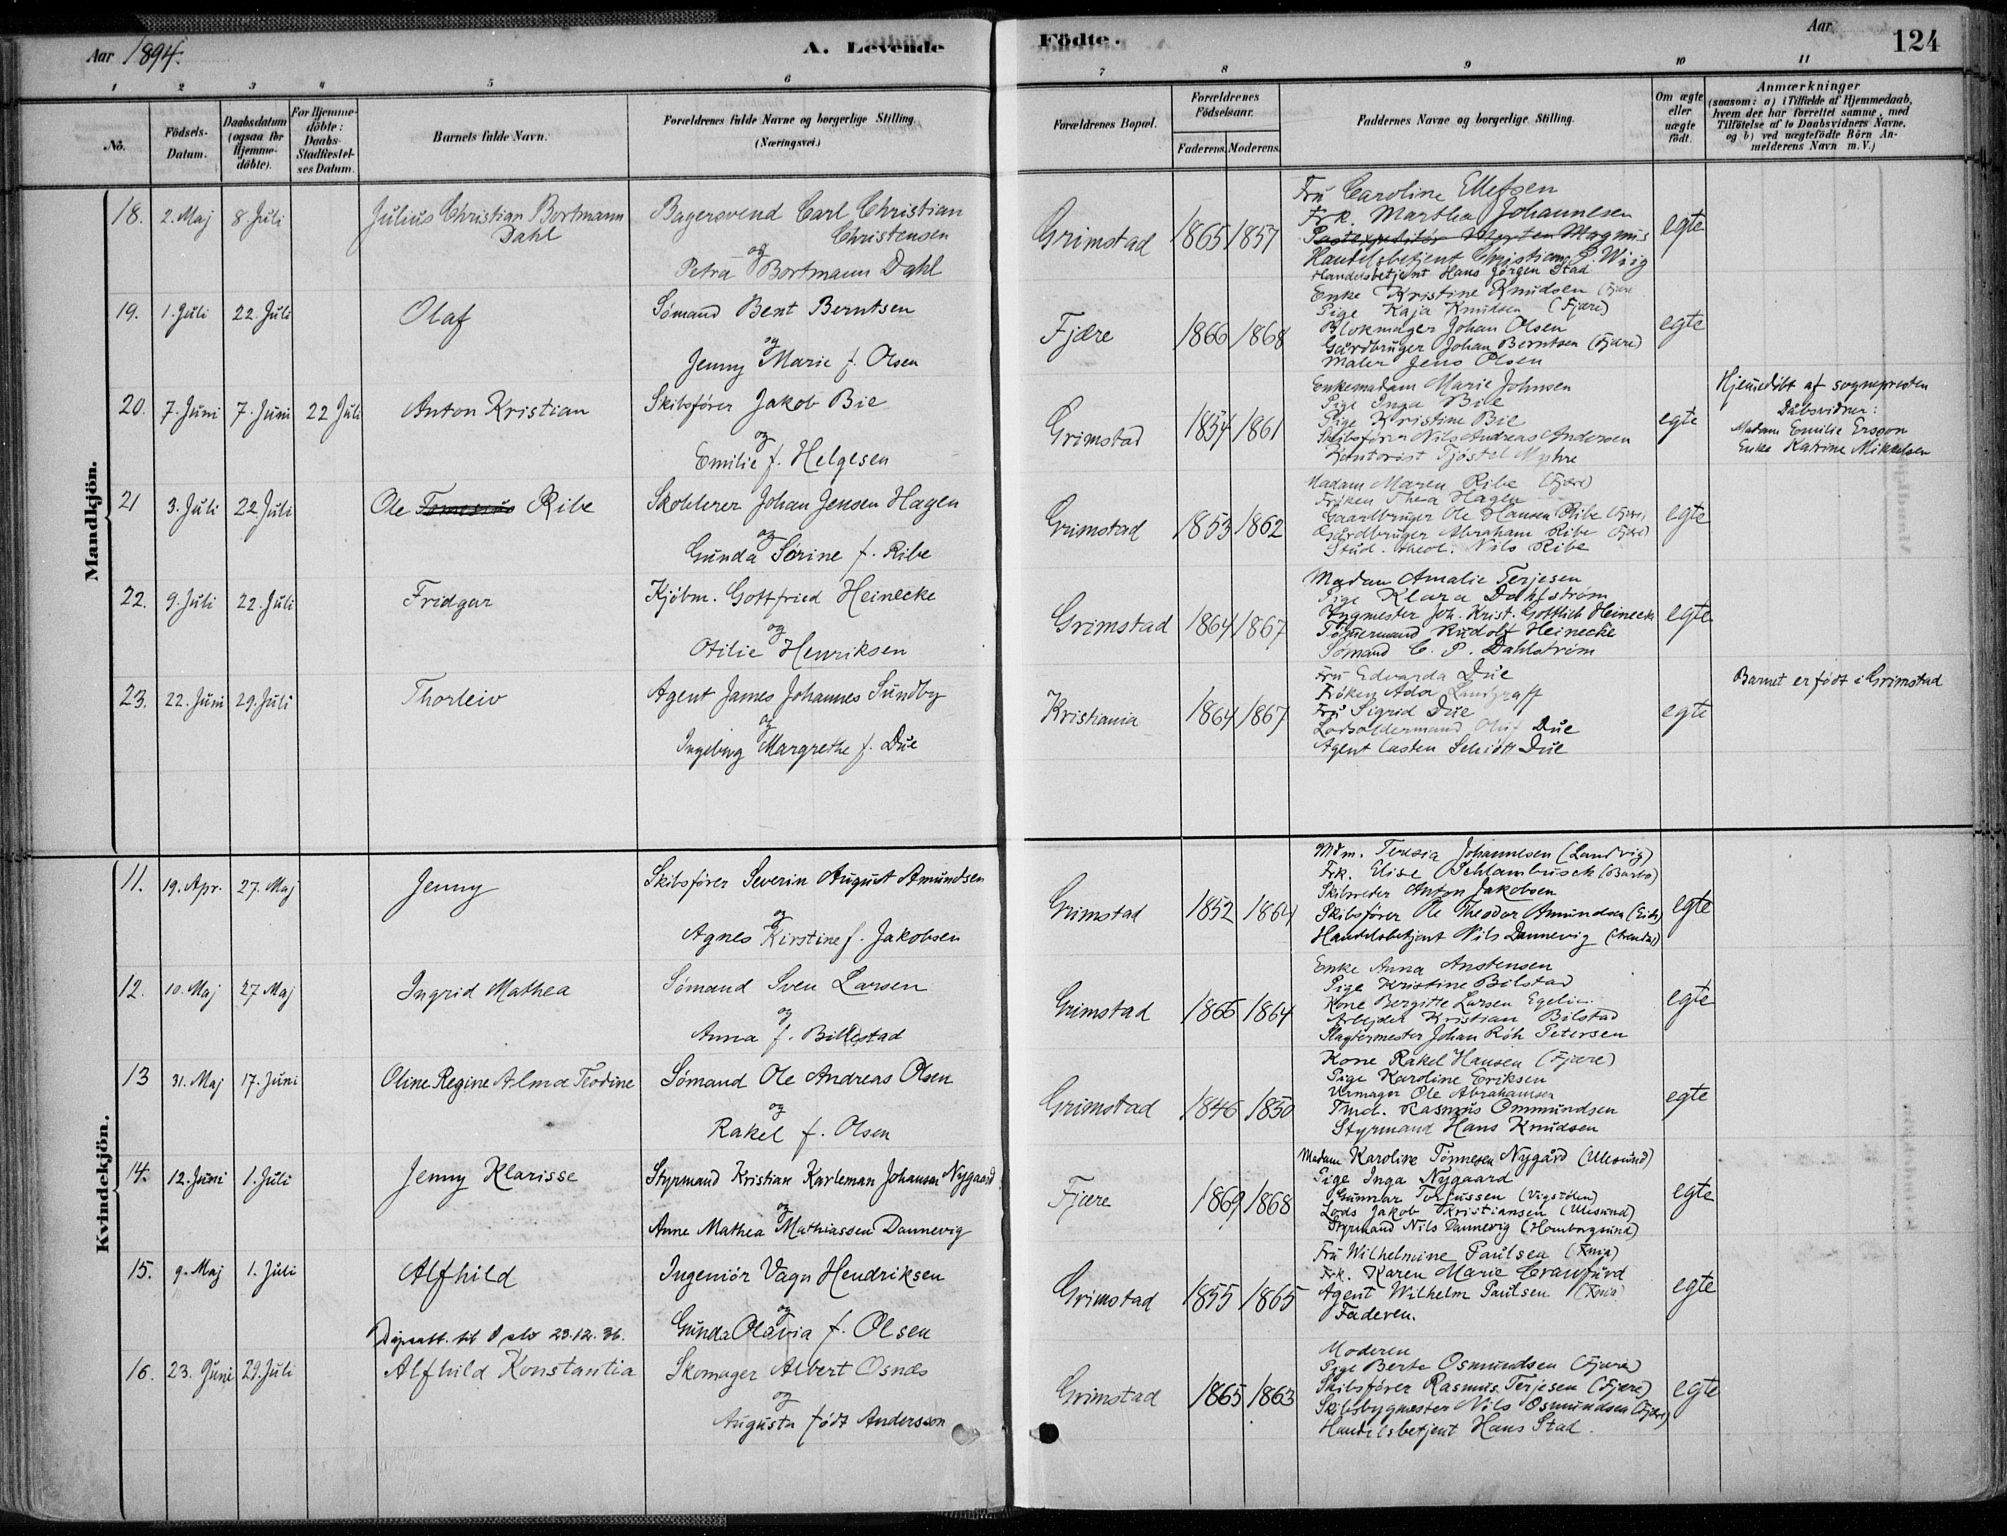 Aar 1894.
A. Levende
1 2 3 4 5 6
No.
Födsels-Datum.
Daabsdatum (ogsaa for Hjemme-döbte).
For Hjemme-döbte: Daabs-Stadfæstel-ses Datum.
Barnets fulde Navn.
Forældrenes fulde Navne og borgerlige Stilling.
(Næringsvei.)
Mandkjön.
18. 2. Maj 8. Juli Julius Christian Bortmann Bagersvend Carl Christian
Dahl Christensen
og
Petra Bortmann Dahl
19. 1. Juli 22. Juli Olaf Sømand Bent Berntsen
og
Jenny Marie f. Olsen
20. 7. Juni 7. Juni 22 Juli Anton Kristian Skibsfører Jakob Bie
og
Emilie f. Helgesen
21 3. Juli 22 Juli Ole Ribe Skolelærer Johan Jensen Hagen
og
Gunda Sørine f. Ribe
22. 9. Juli 22. Juli Fridgar Kjøbm. Gottfried Heinecke
og
Otilie Henriksen
23. 22. Juni 29. Juli Thorleiv Agent James Johannes Sundby
og
Ingeborg Margrethe f. Due
Kvindekjön.
11. 19. Apr. 27. Maj Jenny Skibsfører Severin August Amundsen
og
Agnes Kirstine f. Jakobsen
12. 10. Maj 27 Maj Ingrid Mathea Sømand Sven Larsen
og
Anna f. Billestad
13 31. Maj 17. Juni Oline Regine Alma Teodine Sømand Ole Andreas Olsen
og
Rakel f. Olsen
14. 12. Juni 1. Juli Jenny Klarisse Styrmand Kristian Karleman Johansen Nygaard
og
Anne Mathea Mathiassen Dannevig
15. 9. Maj 1. Juli Alfhild Ingeniör Vagn Hendriksen
og
Dåpsatt. til Oslo 23.12.36. Gunda Olavia f. Olsen
16. 23. Juni 29. Juli Alfhild Konstantia Skomager Albert Osnes
og
Augusta født Andersson
Födte.
Aar
124
7 8 9 10 11
Forældrenes Bopæl.
Forældrenes Födselsaar.
Faderens. Moderens.
Faddernes Navne og borgerlige Stilling.
Om ægte eller uægte födt.
Anmærkninger
(saasom: a) i Tilfælde af Hjemmedaab,
hvem der har forrettet samme, med
Tilföielse af to Daabsvidners Navne,
og b) ved uægtefödte Börn An-
melderens Navn m. V.)
Fru Caroline Ellefsen
Frk. Martha Johannesen
Grimstad 1865 1857 Postexpeditör Morten Magnus egte
Handelsbetjent Christian P. Wiig
Handelsbetjent Hans Jørgen Stad
Enke Kristine Knudsen (Fjære
Pige Kaja Knudsen (Fjære)
Fjære 1866 1868 Blokmager Johan Olsen egte
Gårdbruger Johan Berntsen (Fjære)
Maler Jens Olsen
Enkemadam Marie Johnsen
Pige Inga Bie
Grimstad 1854 1861 Pige Kristine Bie egte
Skibsfører Nils Andreas Andersen
Kontorist Tjøstel Myhre
Hjemedøbt af sognepresten
Dåbsvidner:
Madam Emilie Ersson
Enke Katrine Mikkelsen
Madam Maren Ribe (Fjære)
Frøken Thea Hagen
Grimstad 1853 1862 Gaardbruger Ole Hansen Ribe (Fjære) egte
Gårdbruger Abraham Ribe (Fjære)
Stud. theol. Nils Ribe
Madam Amalie Terjesen
Pige Klara Dahlstrøm
Grimstad 1864 1867 Bygmester Joh. Krist. Gottlieb Heinecke egte
Tømmermand Rudolf Heinecke
Sømand C. P. Dahlstrøm
Fru Edvarda Due
Frøken Ada Landgraff
Kristiania 1864 1867 Fru Sigrid Due egte
Lodsoldermand Oluf Due
Agent Casten Schiött Due
Barnet er født i Grimstad
Mdm. Teresia Johannesen (Landvig)
Frk. Elise Schlambusch (Barbo)
Skibsreder Anton Jakobsen
Grimstad 1852 1864 Skibsfører Ole Theodor Amundsen (Eide) egte
Handelsbetjent Nils Dannevig (Arendal)
Enke Anna Anstensen
Pige Kristine Bilstad
Grimstad 1866 1864 Kone Bergitte Larsen egte
Arbejder Kristian Bilstad
Slagtermester Johan Röh Petersen
Kone Rakel Hansen (Fjære)
Pige Karoline Eriksen
Grimstad 1846 1850 Urmager Ole Abrahamsen egte
Tmd. Rasmus Ommundsen
Styrmand Hans Knudsen
Madam Karoline Tønnesen Nygård (Ulesund)
Pige Inga Nygaard
Fjære 1869 1868 Gunnar Torjussen egte
Lods Jakob Kristiansen (Ulesund)
Styrmand Nils Dannevig (Homborgsund)
Fru Wilhelmine Paulsen (Krnia)
Frk. Karen Marie Crawfurd
Grimstad 1855 1865 Agent Wilhelm Paulsen (Krnia) egte
Faderen.
Moderen
Pige Berte Osmundsen (Fjære)
Grimstad 1865 1863 Skibsfører Rasmus Terjesen (Fjære) egte
Skibsbygmester Nils Osmundsen (Fjære)
Handelsbetjent Hans Stad.